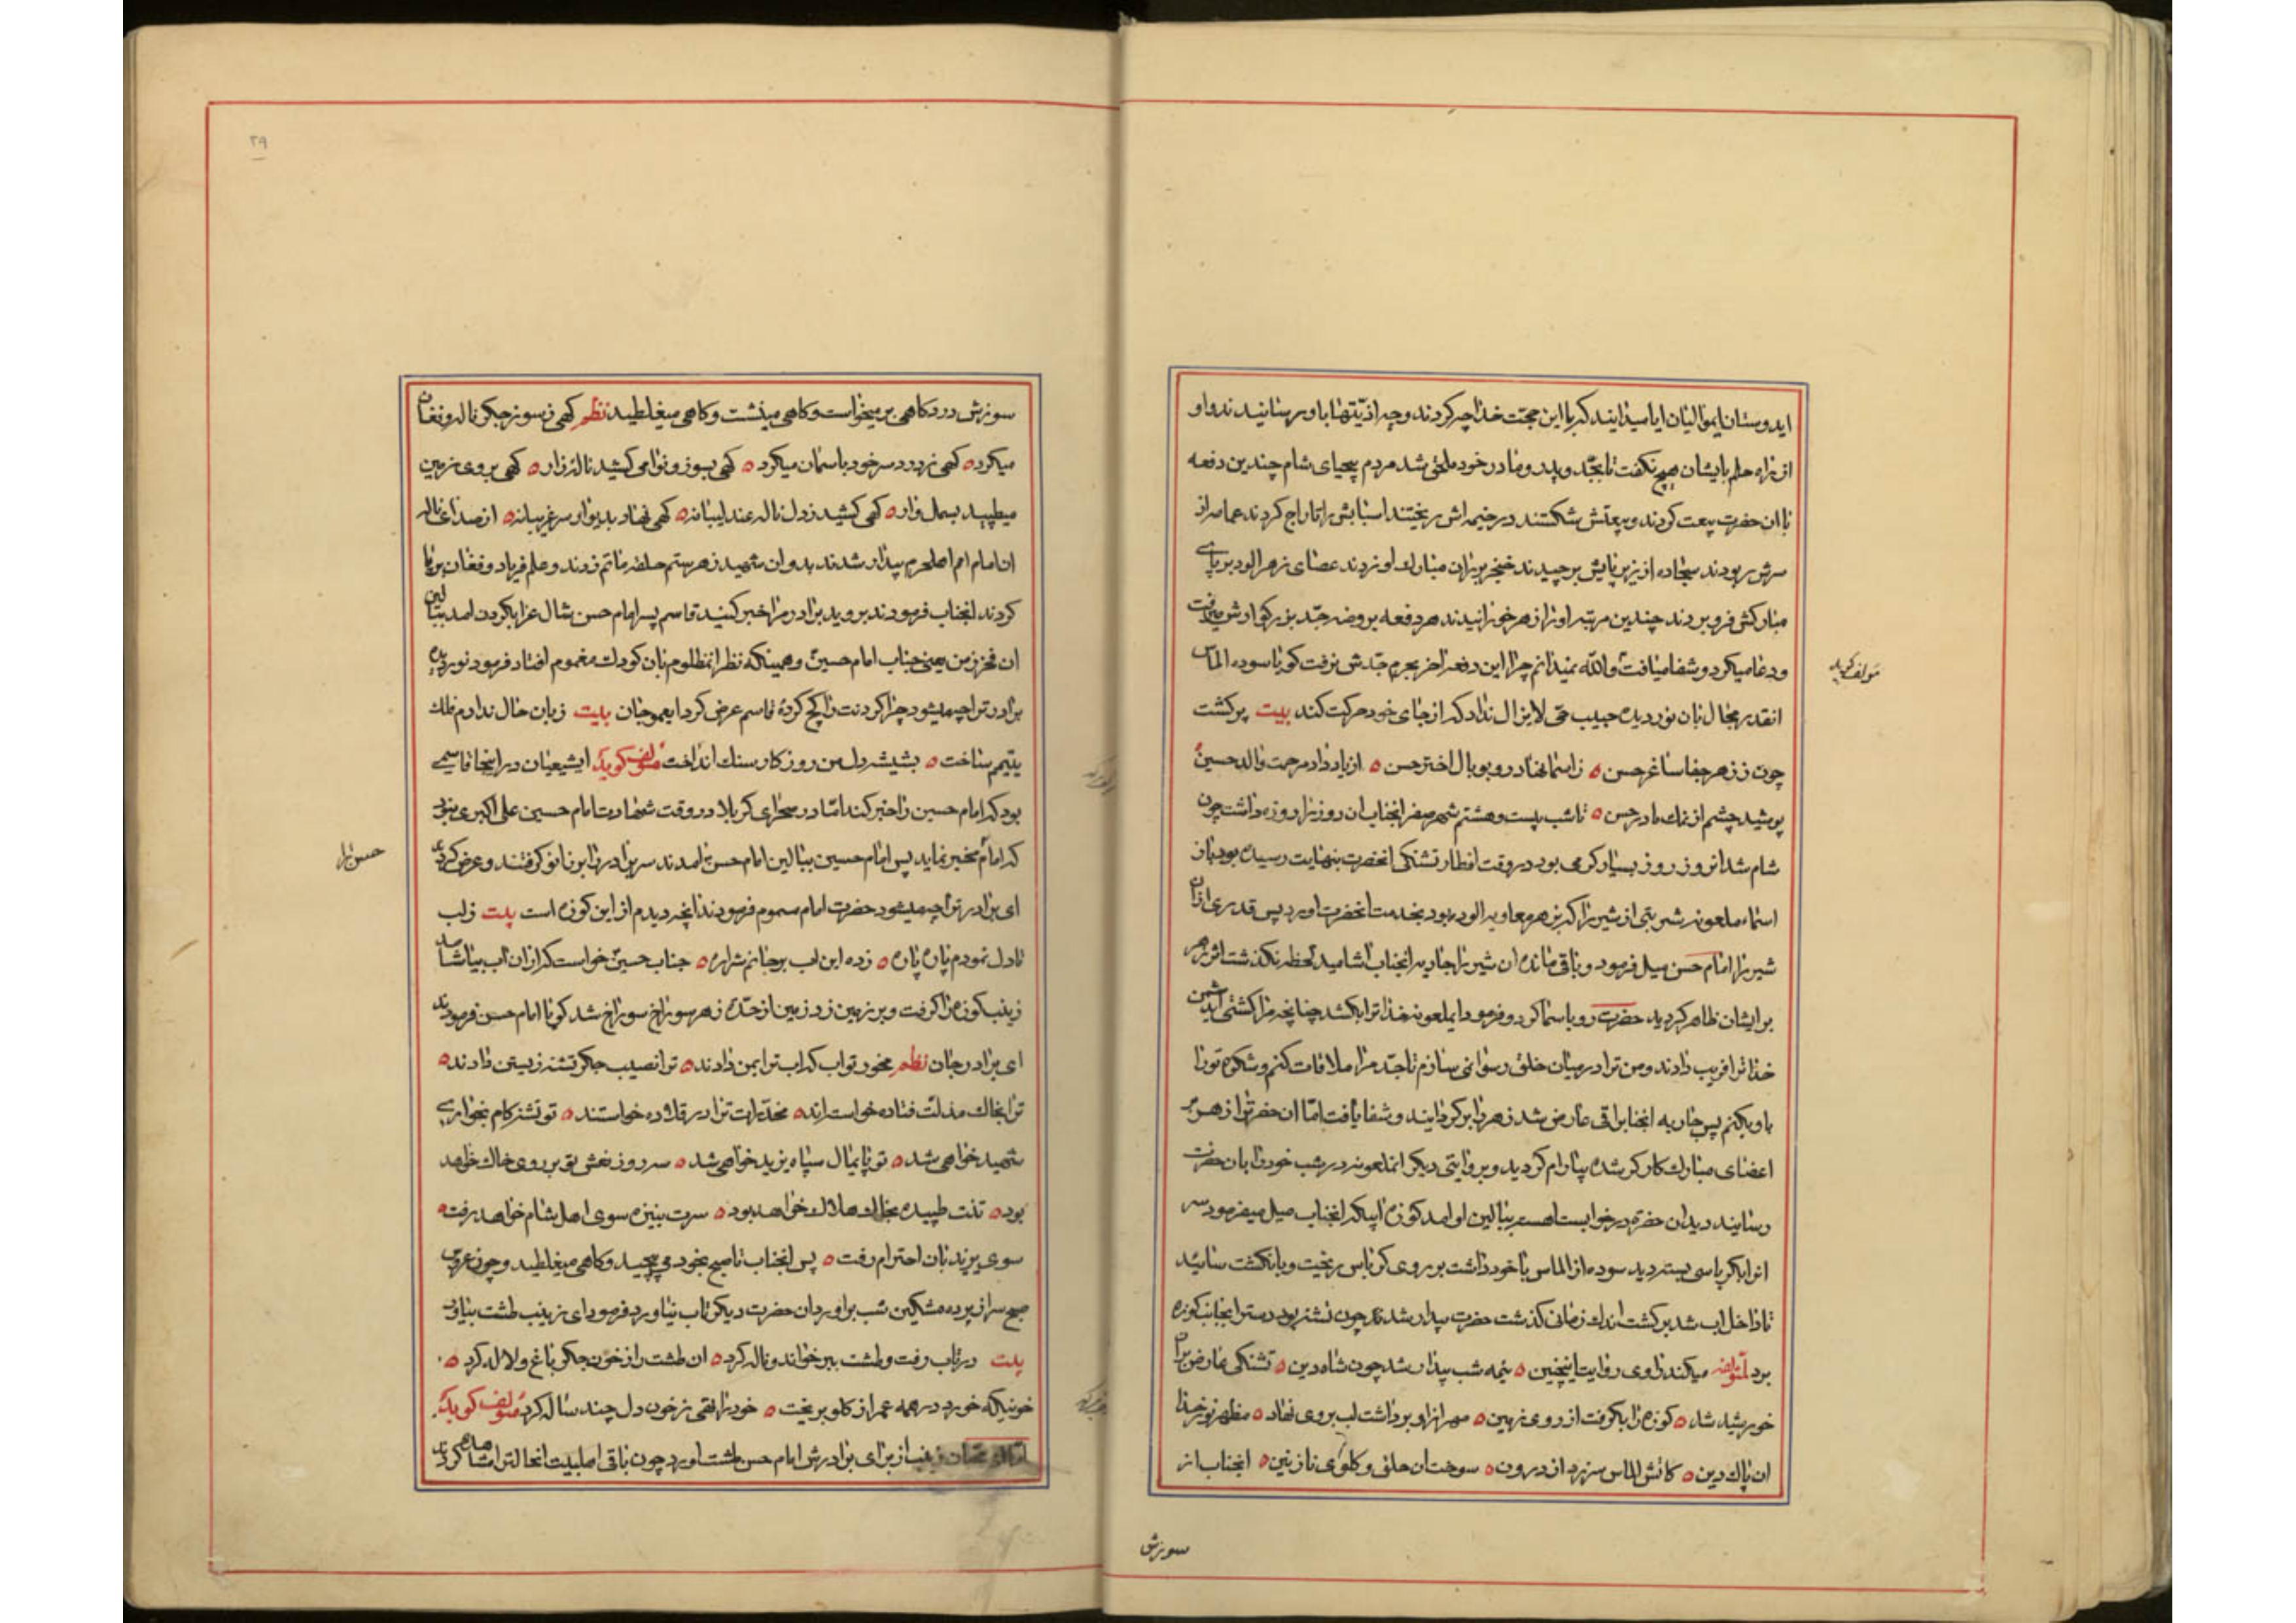 ایدوستان ایموالیان ایا میدانید که با این حجت خدا چه کردند و چه اذیتها باو رسانیدند و او
از راه حلم بایشان هیچ نکفت تا بجد و پدر و مادر خود ملحق شد مردم بیحیای شام چندین دفعه
با ان حضرت بیعت کردند و بیعتش شکستند در خیمه اش ریختند اسبابش را تاراج کردند عمامه از
سرش ربودند سجاده از زیر پایش برچیدند خنجر بران مبارك او زدند عصای زهر الود بر پای
مبارکش فرو بردند چندین مرتبه او را زهر خورانیدند هر دفعه بروضه جد بزرکوارش میرفت
و دعا میکرد و شفا میافت والله نمیدانم چرا این دفعه اخر بحرم جدش نرفت کویا سوده الماس
انقدر مجال بان نوردیده حبیب حق لایزال نداد که از جای خود حرکت کند بیت پر کشت
چون ز زهر جفا ساغر حسن ه ز اسما نهاد رو بوبال اختر حسن ه از یاد داد مرحمت والد حسین
پوشید چشم از نمك مادر حسن ه تا شب بیست و هشتم شهر صفر انجناب ان روز را روزه داشت چون
شام شد انروز روز بسیار کرمی بود در وقت افطار تشنکی انحضرت بنهایت رسیده بود بناز
اسماء ملعونه شربتی از شیر را که بزهر معاویه الوده بود بخدمت انحضرت اورد پس قدری از ان
شیر را امام حسن میل فرمود و باقی مانده ان شیر را جاریه انجناب اشامید لحظه نکذشت اثر زهر
بر ایشان ظاهر کردید حضرت رو باسما کرد و فرمود ایملعونه خدا ترا بکشد چنانچه مرا کشتی ایدشمن
خدا ترا فریب دادند و من ترا در میان خلق رسوا نمی سازم تا جد مرا ملاقات کنم و شکوه تو را
باو بکنم پس جاریه انجناب را قی عارض شد زهر را بر کردانید و شفا یافت اما ان حضرت را از هر
اعضای مبارك کار کر شده بیارام کردید و بروایتی دیکر انملعونه در شب خود را بان حضرت
رسانید دید ان حضرت در خوابست اهسته ببالین او امد کوزه اب که انجناب میل میفرمود سر
انرا بکرباسی بسته دید سوده از الماس با خود داشت بر روی کرباس ریخت و بانکشت سائید
تا داخل اب شد برکشت اندك زمانی کذشت حضرت بیدار شدند چون تشنه بود دست را بجانب کوزه
برد لمؤلفه میکند راوی روایت اینچنین ه نیمه شب بیدار شد چون شاه دین ه تشنکی عارض بر ان
خورشید شد ه کوزه را بکرفت از روی زمین ه مهر از او برداشت لب بروی نهاد ه مظهر نور خدا
ان پاك دین ه کاتش الماس سر زد از درون ه سوخت ان حلق و کلوی نازنین ه انجناب از
سوزش
مولف کوید
۲۹
سوزش درد کاهی بر میخواست و کاهی مینشست و کاهی میغلطید نظم کهی ز سوز جکر ناله و فغان
میکرد ه کهی ز درد سر خود باسمان میکرد ه کهی بسوز و نوا می کشید ناله زار ه کهی بروی زمین
میطپید بسمل وار ه کهی کشید ز دل ناله عندلیبانه ه کهی نهاد بدیوار سر غریبانه ه از صدای ناله
ان امام امم اهلحرم بیدار شدند بدور ان شهید زهر ستم حلقه ماتم زدند و علم فریاد و فغان بر پا
کردند انجناب فرمودند بروید برادر مرا خبر کنید قاسم پسر امام حسن شال عزا بکردن امد ببالین
ان فخر زمن یعنی جناب امام حسین و همینکه نظر انمظلوم بان کودك مغموم افتاد فرمود نوردیده
برادر ترا چه میشود چرا کردنت را کج کردهٔ قاسم عرض کرد ایعموجان بیت زبان حال ندارم فلك
یتیم ساخت ه بشیشه دل من روزکار سنك انداخت مؤلف کوید ایشیعیان در اینجا قاسمی
بود که امام حسین را خبر کند اما در صحرای کربلا در وقت شهادت امام حسین علی اکبری نبود
که امام مخبر نماید پس امام حسین ببالین امام حسن امدند سر برادر را بر زانو کرفتند و عرض کردند
ای برادر ترا چه میشود حضرت امام مسموم فرمودند انچه دیدم از این کوزه است بیت ز لب
تا دل نمودم پاره پاره ه زده این اب بر جانم شراره ه جناب حسین خواست که از ان اب بیاشامد
زینب کوزه را کرفت و بر زمین زد زمین از حدة زهر سوراخ سوراخ شد کویا امام حسن فرمودند
ای برادر جان نظم مخور تو اب که اب ترا بمن دادند ه ترا نصیب جکر تشنه زیستن دادند ه
ترا بخاك مذلت فتاده خواسته اند ه مخدرات ترا در قلاده خواستند ه تو تشنه کام بخواری
شهید خواهی شد ه تو پایمال سپاه یزید خواهی شد ه سه روز نعش تو بر روی خاك خواهد
بود ه تنت طپیده بخاك هلاك خواهد بود ه سرت بنیزه سوی اهل شام خواهد رفت ه
سوی یزید بان احترام رفت ه پس انجناب تا صبح بخود می پیچید و کاهی میغلطید و چون عروس
صبح سر از پرده مشکین شب براورد ان حضرت دیکر تاب نیاورد فرمود ای زینب طشت بیاور
بیت در تاب رفت و طشت ببر خواند و ناله کرد ه ان طشت را ز خون جکر باغ و لاله کرد ه
خونیکه خورد در همه عمر از کلو بریخت ه خود را تهی ز خون دل چند ساله کرد مؤلف کوید
زینب از برای برادرش امام حسن طشت اورد چون باقی اهلبیت انحالت را مشاهده کردند
حسن را